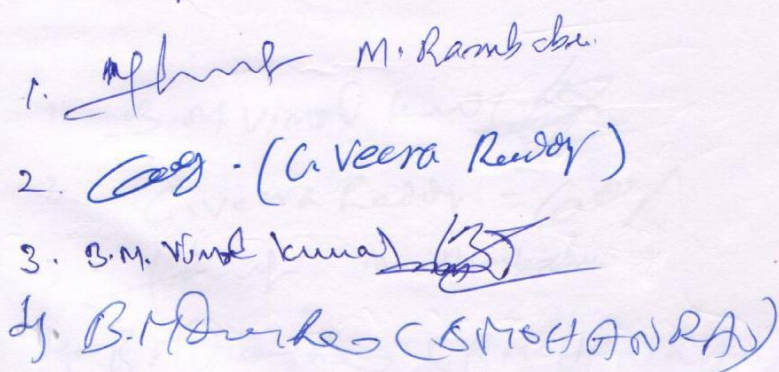 1. M. Rambabu.
2. (G. Veera Reddy)
3. B.M. Vimal Kumar
4. B. Mohan Rao (B MOHAN RAO)